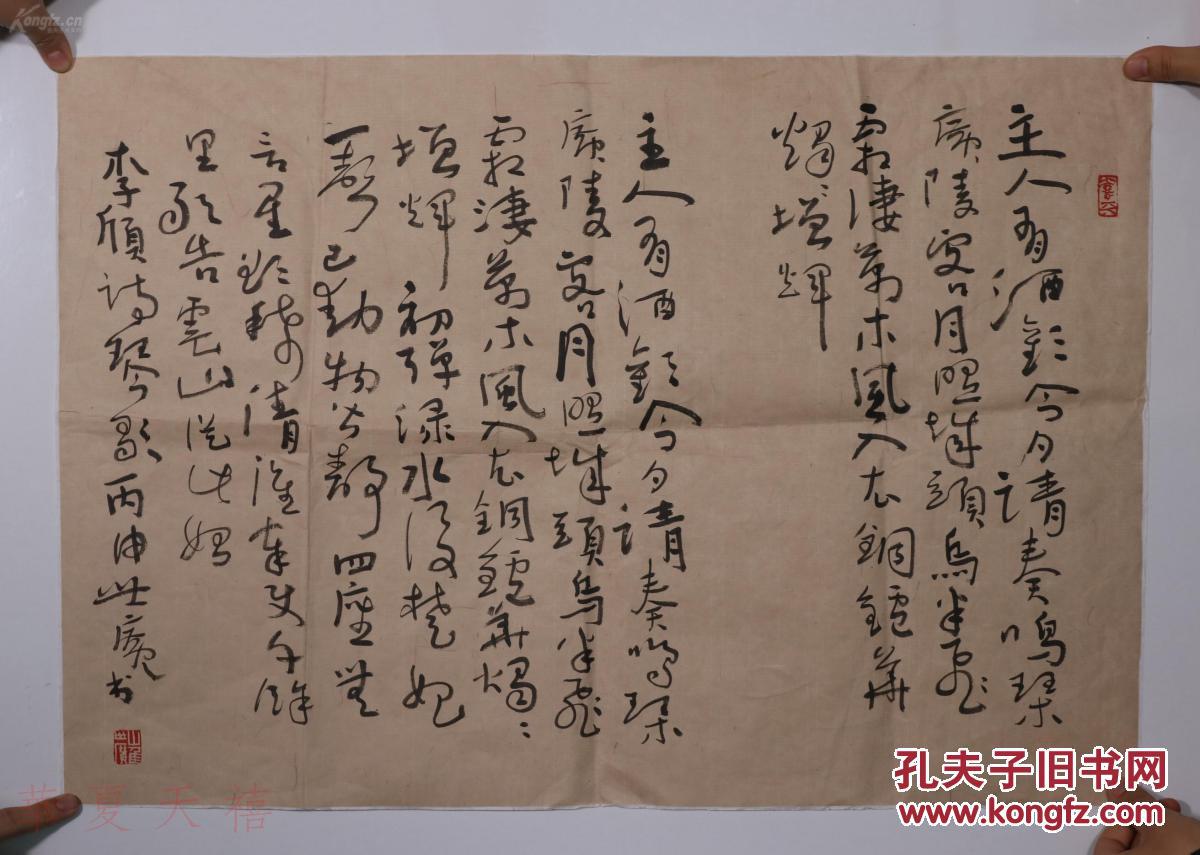 主人有酒歡今夕請奏鳴琹
廣陵客月照城頭烏半飛
霜淒萬木風入衣銅鑪華
燭〻增輝
主人有酒歡今夕請奏鳴琹
廣陵客月照城頭烏半飛
霜淒萬木風入衣銅鑪華燭〻
增輝初彈淥水後楚妃
一聲已動物皆靜四座無
言星欲稀清淮奉使千餘
里敢告雲山從此始
李頎詩琴歌丙申世廣书
Kongfz.cn
華夏天禧
孔夫子旧书网
www.kongfz.com